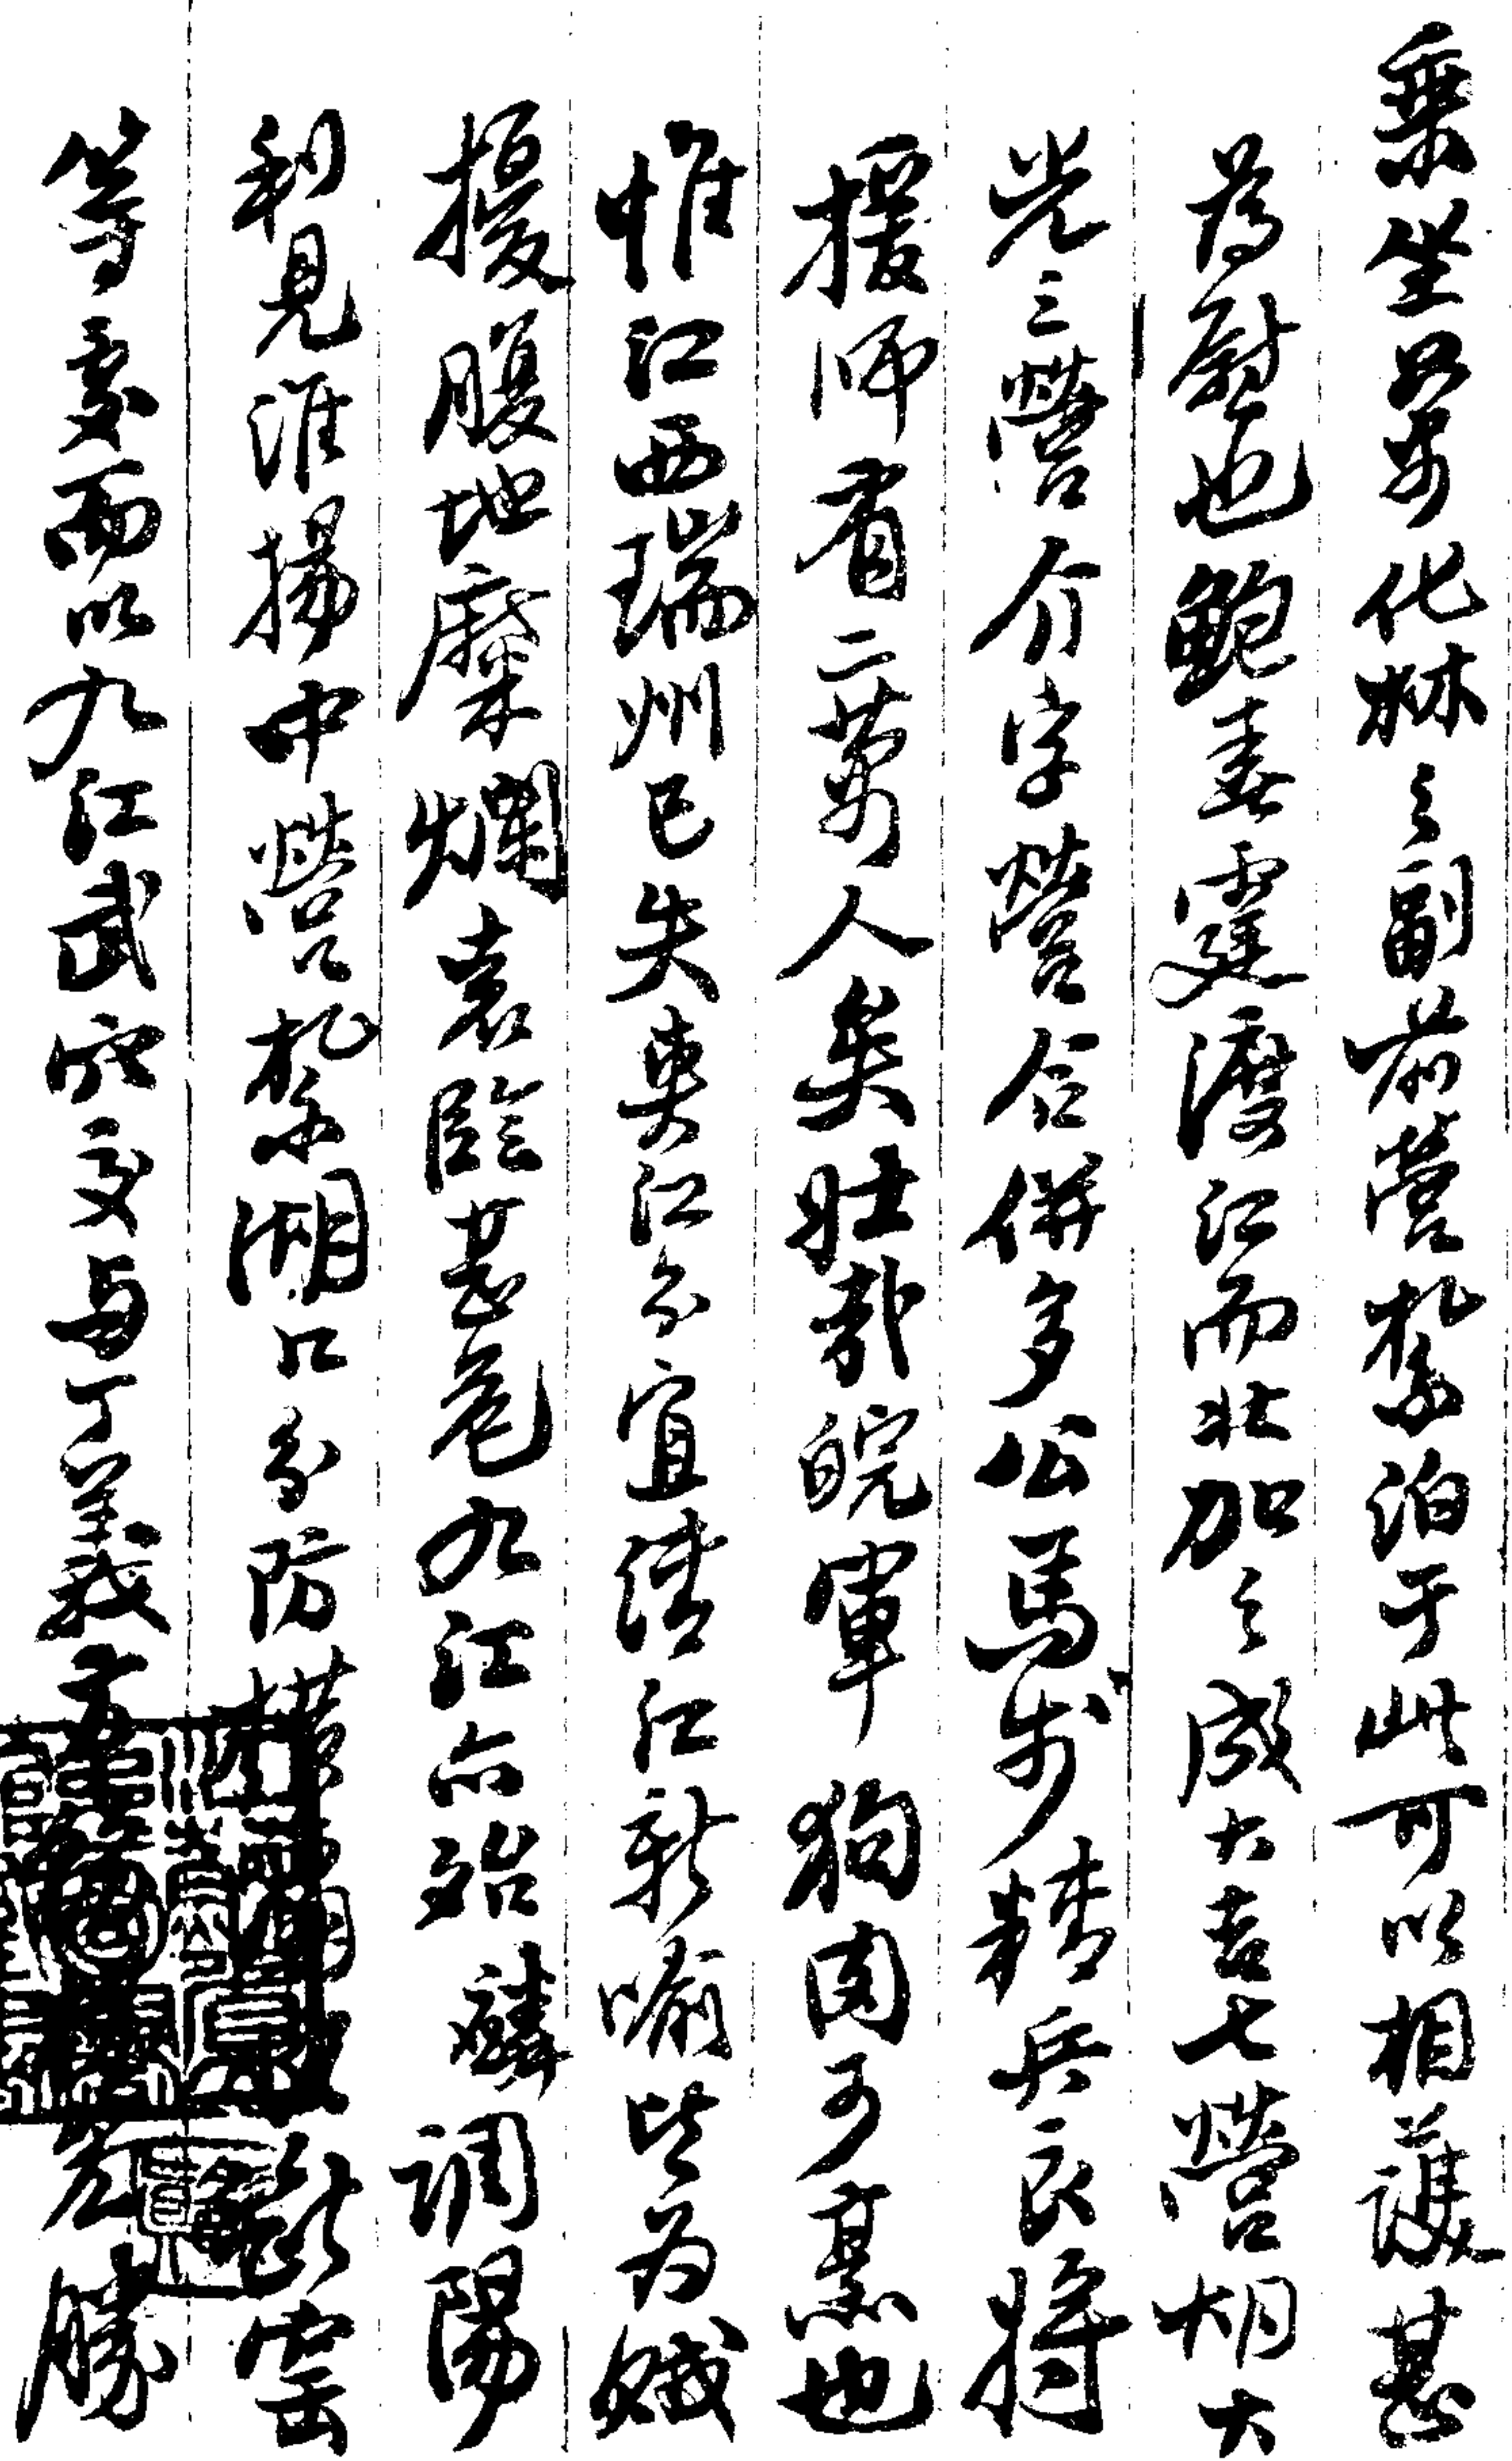 乘坐萬化林之副前營紮泊于此可以相護甚
為慰也鮑春霆渡江而北加之成大吉七營胡大
光三營介字營合併多公馬步精兵良將
援師有二萬人矣壯哉皖軍狗肉可烹也
惟江西瑞州已失奧江不宜清江新喻皆為賊
擾腹地糜爛袁臨甚危九江亦殆麟調陽
利見淮揚中營紮湖口分防
等處而以九江武穴交与丁義方
勝